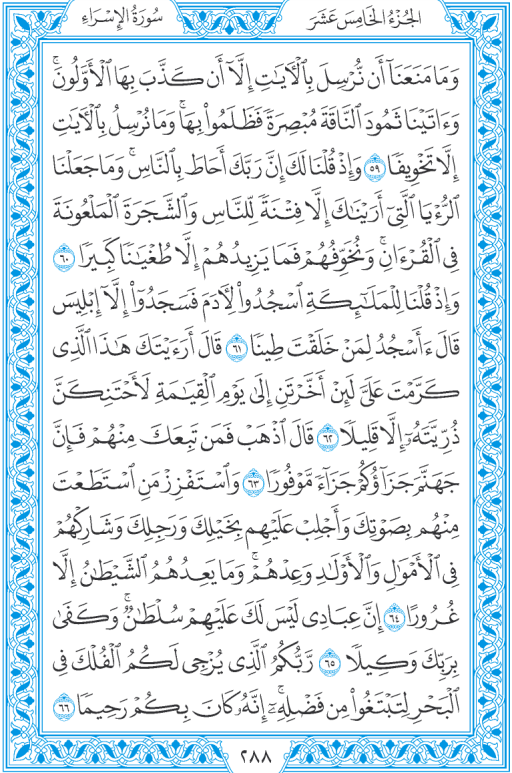 سُورَةُ الإِسْرَاءِ
الجُزْءُ الخَامِسَ عَشَرَ
وَمَا مَنَعَنَآ أَن نُّرْسِلَ بِٱلْأٓيَٰتِ إِلَّآ أَن كَذَّبَ بِهَا ٱلْأَوَّلُونَۚ
وَءَاتَيْنَا ثَمُودَ ٱلنَّاقَةَ مُبْصِرَةً فَظَلَمُوا۟ بِهَاۚ وَمَا نُرْسِلُ بِٱلْأٓيَٰتِ
إِلَّا تَخْوِيفًا ٥٩ وَإِذْ قُلْنَا لَكَ إِنَّ رَبَّكَ أَحَاطَ بِٱلنَّاسِۚ وَمَا جَعَلْنَا
ٱلرُّءْيَا ٱلَّتِىٓ أَرَيْنَٰكَ إِلَّا فِتْنَةً لِّلنَّاسِ وَٱلشَّجَرَةَ ٱلْمَلْعُونَةَ
فِى ٱلْقُرْءَانِۚ وَنُخَوِّفُهُمْ فَمَا يَزِيدُهُمْ إِلَّا طُغْيَٰنًا كَبِيرًا ٦٠
وَإِذْ قُلْنَا لِلْمَلَٰٓئِكَةِ ٱسْجُدُوا۟ لِأٓدَمَ فَسَجَدُوٓا۟ إِلَّآ إِبْلِيسَ
قَالَ ءَأَسْجُدُ لِمَنْ خَلَقْتَ طِينًا ٦١ قَالَ أَرَءَيْتَكَ هَٰذَا ٱلَّذِى
كَرَّمْتَ عَلَىَّ لَئِنْ أَخَّرْتَنِ إِلَىٰ يَوْمِ ٱلْقِيَٰمَةِ لَأَحْتَنِكَنَّ
ذُرِّيَّتَهُۥٓ إِلَّا قَلِيلًا ٦٢ قَالَ ٱذْهَبْ فَمَن تَبِعَكَ مِنْهُمْ فَإِنَّ
جَهَنَّمَ جَزَآؤُكُمْ جَزَآءً مَّوْفُورًا ٦٣ وَٱسْتَفْزِزْ مَنِ ٱسْتَطَعْتَ
مِنْهُم بِصَوْتِكَ وَأَجْلِبْ عَلَيْهِم بِخَيْلِكَ وَرَجِلِكَ وَشَارِكْهُمْ
فِى ٱلْأَمْوَٰلِ وَٱلْأَوْلَٰدِ وَعِدْهُمْۚ وَمَا يَعِدُهُمُ ٱلشَّيْطَٰنُ إِلَّا
غُرُورًا ٦٤ إِنَّ عِبَادِى لَيْسَ لَكَ عَلَيْهِمْ سُلْطَٰنٌۚ وَكَفَىٰ
بِرَبِّكَ وَكِيلًا ٦٥ رَّبُّكُمُ ٱلَّذِى يُزْجِى لَكُمُ ٱلْفُلْكَ فِى
ٱلْبَحْرِ لِتَبْتَغُوا۟ مِن فَضْلِهِۦٓۚ إِنَّهُۥ كَانَ بِكُمْ رَحِيمًا ٦٦
٢٨٨